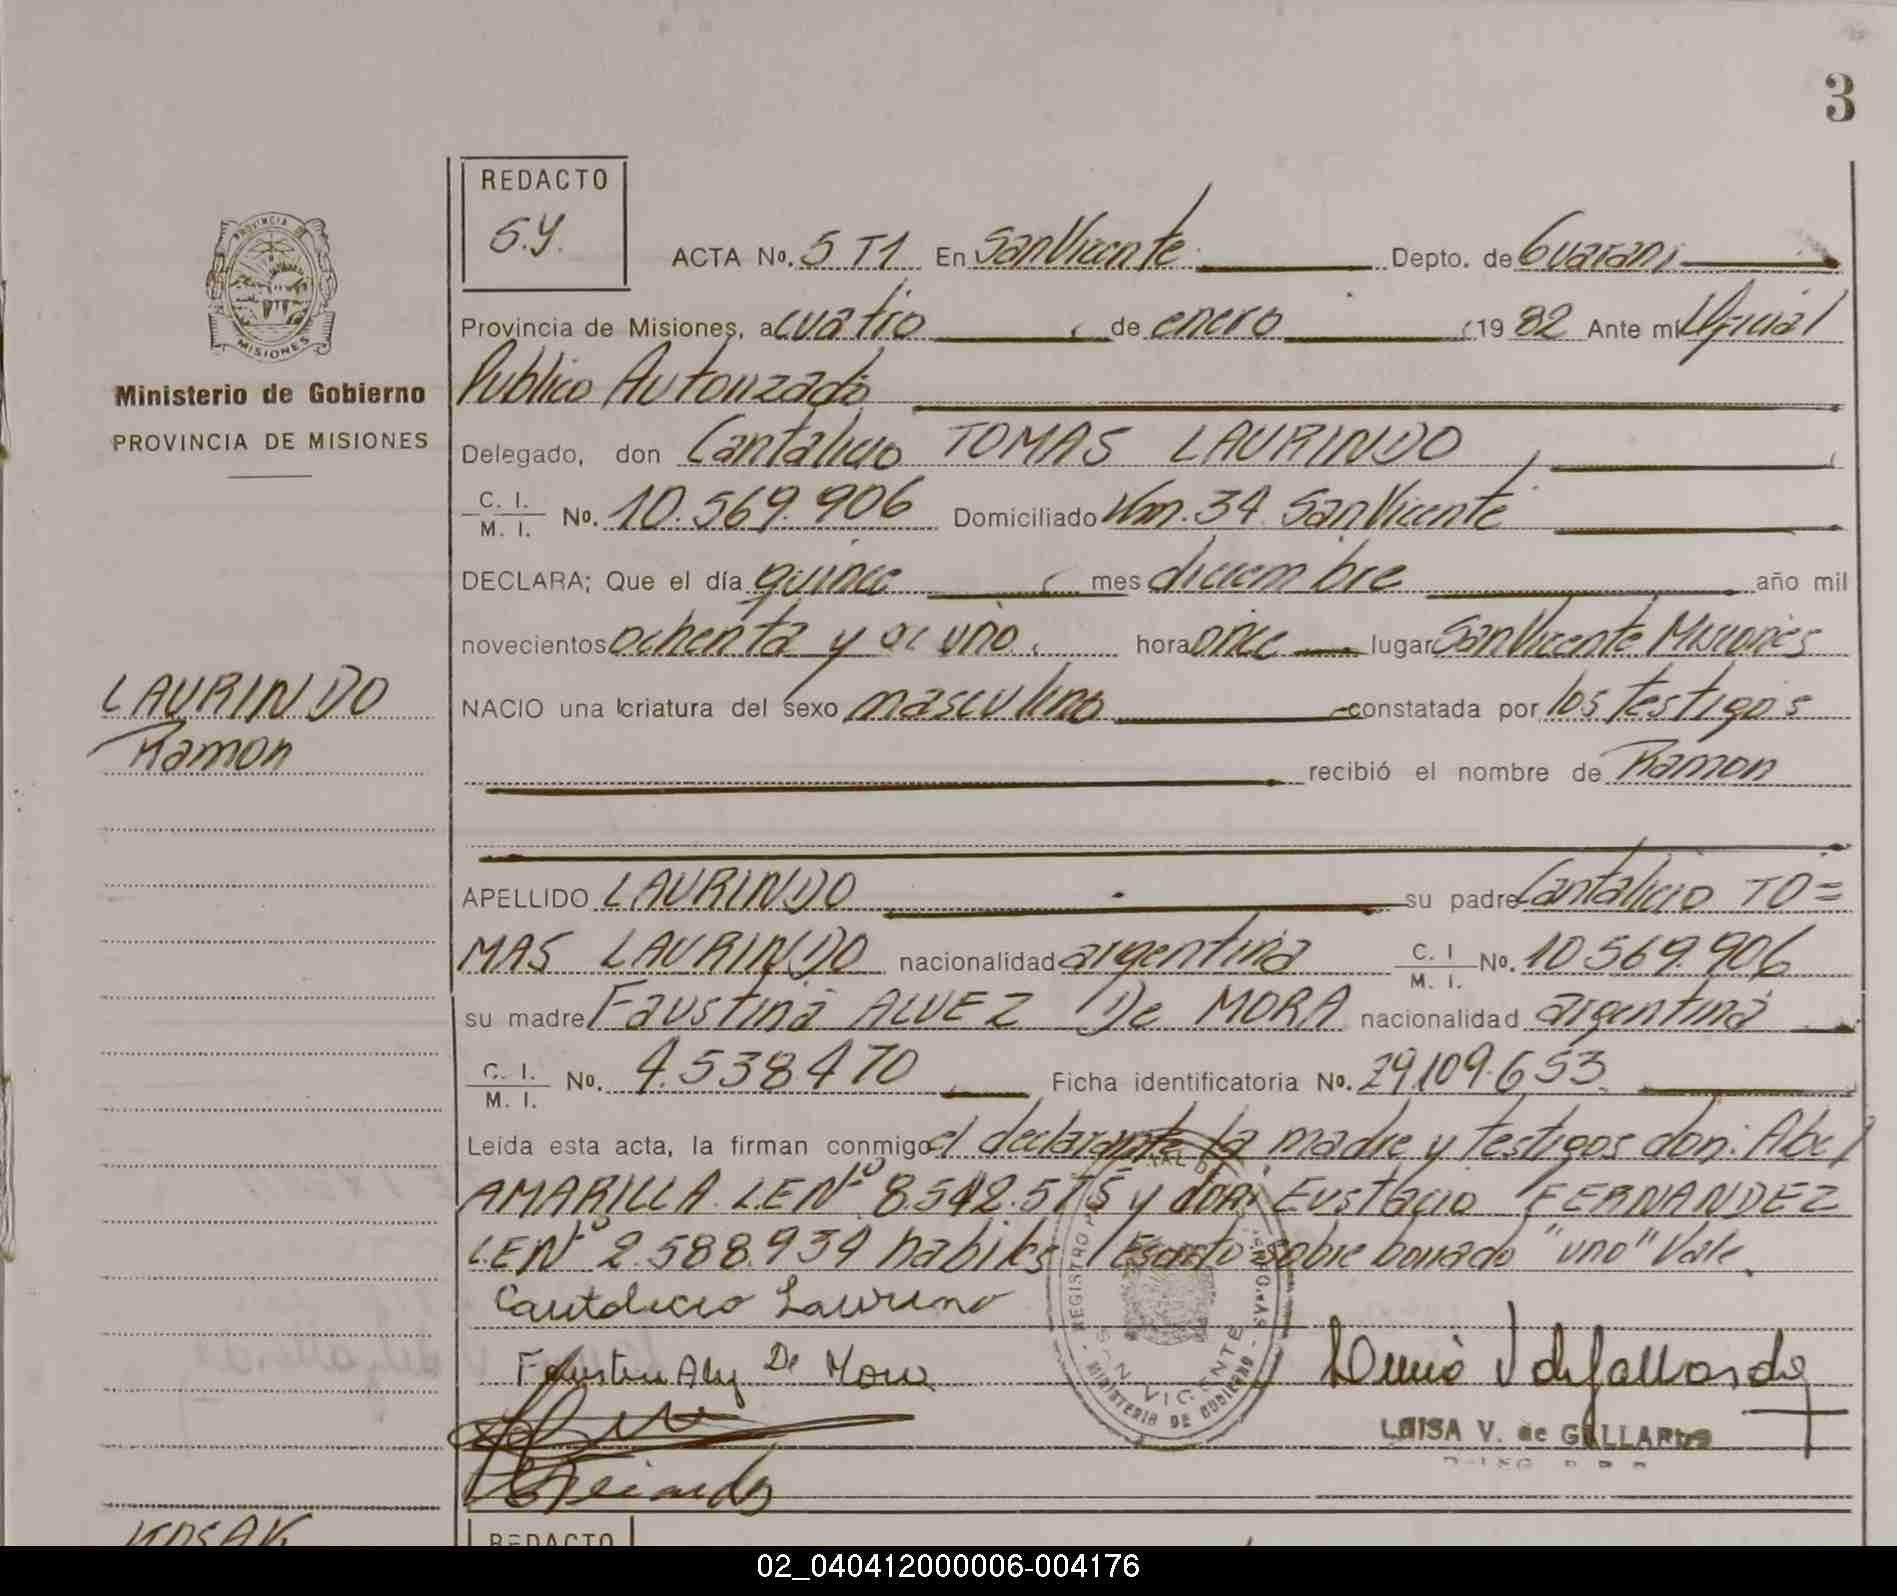 3
REDACTO
S.Y.
ACTA No. 5 T1 En San Vicente Depto. de Guarani
PROVINCIA DE MISIONES
Provincia de Misiones, a cuatro de enero 1982 Ante mi Oficial
Ministerio de Gobierno
Publico Autorizado
PROVINCIA DE MISIONES
Delegado, don Cantalicio TOMAS LAURINDO,
C. I. / M. I. No. 10.569.906 Domiciliado Km. 34 San Vicente
DECLARA; Que el día quince mes diciembre año mil
novecientos ochenta y uno. hora once lugar San Vicente Misiones
LAURINDO
NACIO una criatura del sexo masculino constatada por los testigos
Ramon
recibió el nombre de Ramon
APELLIDO LAURINDO su padre Cantalicio TO=
MAS LAURINDO nacionalidad argentina C. I / M. I. No. 10.569.906
su madre Faustina ALVEZ De MORA nacionalidad argentina
C. I. / M. I. No. 4.538470 Ficha identificatoria No. 29109.653
Leída esta acta, la firman conmigo el declarante la madre y testigos don: Abel
AMARILLA L.E Nº 8.542.575 y don: Eustacio FERNANDEZ
L.E Nº 2.588.934 habiles / Escrito sobre borrado "uno" Vale.
Cantalicio Laurino
De Mora
SAN VICENTE
MINISTERIO DE GOBIERNO
LUISA V. de GALLARDO
REDACTO
02_040412000006-004176